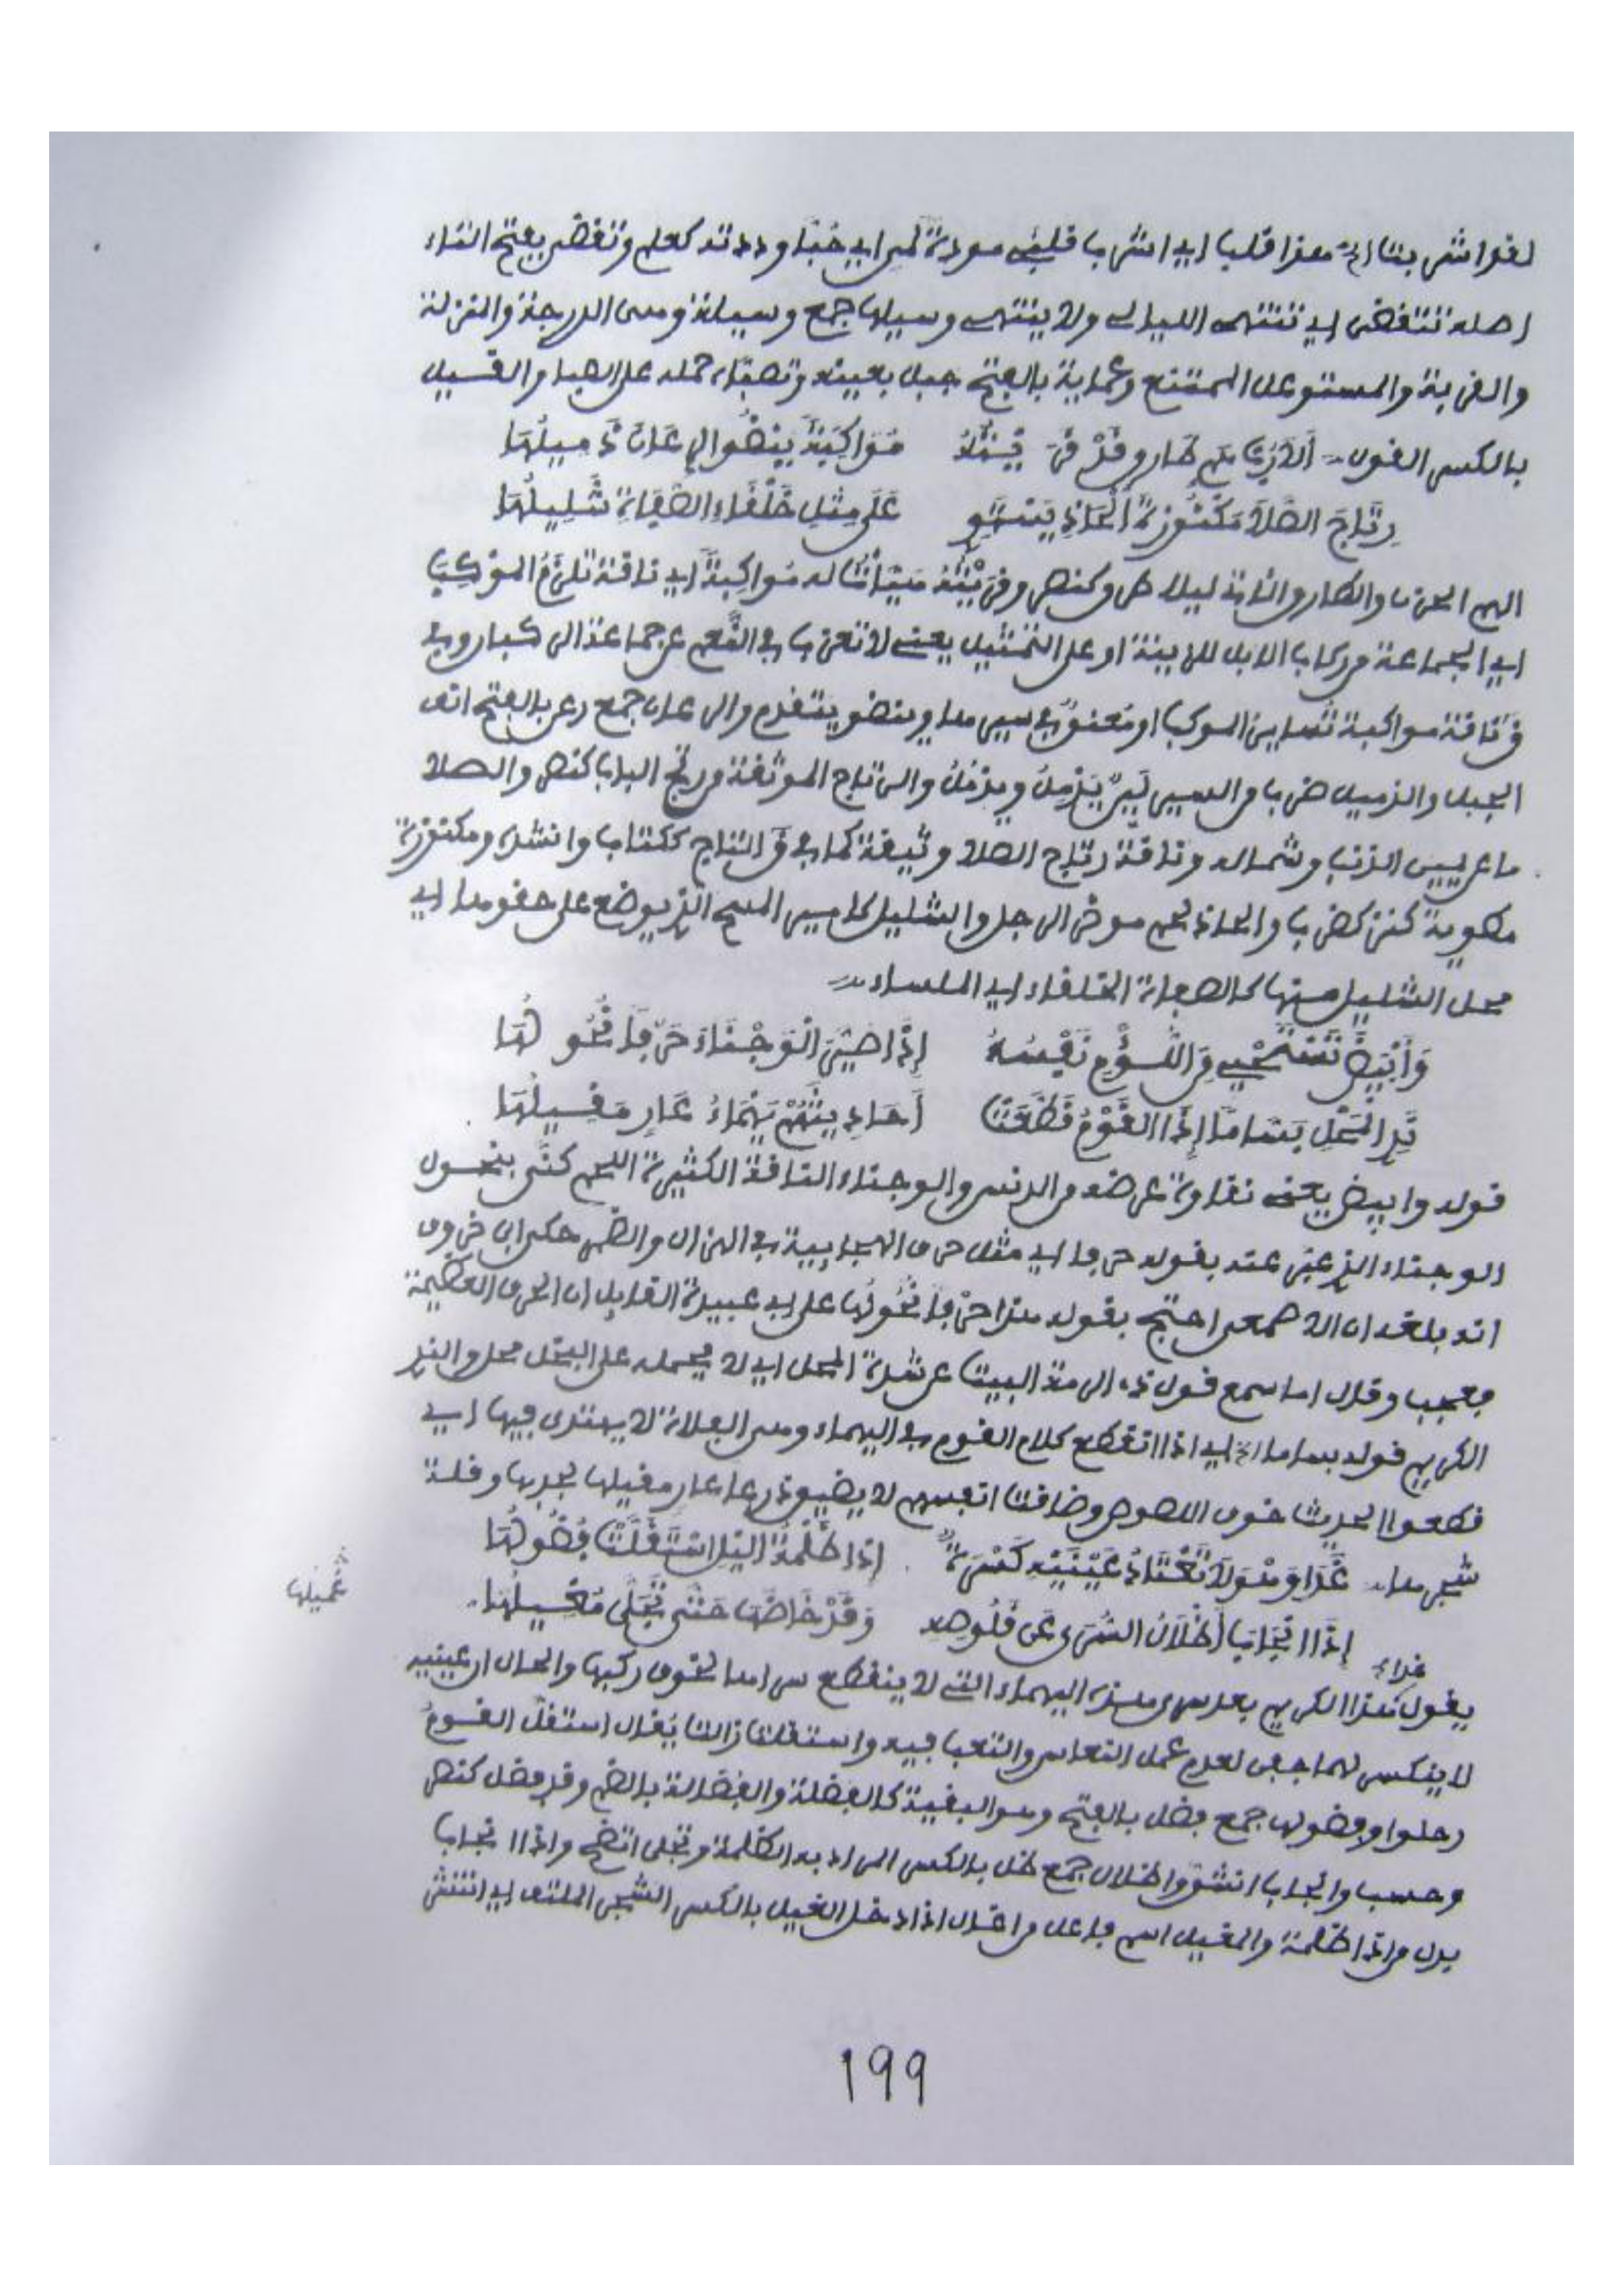 لقد اشربت الخ هذا قلبا اي اشرب قلبي مودة لمي اي حبا وددته كعلم وتقضى بفتح التاء
اصله تتقضى اي تنتهي الليالي ولا ينتهي وسيلها جمع وسيلة وهي الدرجة والمنزلة
والقربة والمستوعل الممتنع وعماية بالفتح جبل بعينه وتصباه حمله على الصبا والقسيل
بالكسر القول أَلا رُبَّ هم طارق قد قريته مُوَاكِبَةً ينضو الرعان ذميلُهَا
رِتَاجَ الصَّلَا مَكْنُوزَةُ الْحَاذِ يَسْتَوِي عَلَى مِثْلِ خَلْقَاءِ الصَّفَاةِ شَلِيلُهَا
الهم الحزن والطارق الآتي ليلا طرق كنصر وقريته هيأت له مواكبة اي ناقة تلزم الموكب
اي الجماعة من ركاب الابل للزينة او على التمثيل يعني لا تعزب في القم عن جماعة الركبان وفي
ق ناقة مواكبة تساير الموكب او معنق في سيرها وينضو يتقدم والرعان جمع رعن بالفتح انف
الجبل والذميل ضرب من السير لين يذمل ويذمل والرتاج الموثقة من رتج الباب كنصر والصلا
ما عن يمين الذنب وشماله وناقة رتاج الصلا وثيقة كما في ق التاج ككتاب وانشده ومكنوزة
مطوية كنز كضرب والحاذ لحم موخر الرجل والشليل كامير المسح الذي يوضع على حقوها اي
محل الشليل منها كالصفاة الخلقاء اي الملساء
وَأَبْيَضَ تَسْتَحْيِي مِنَ اللُّؤْمِ نَفْسُهُ إِذَا صَيَّرَ الْوَجْنَاءَ حَرْفًا نُحُولُهَا
نَدِي الْمَحْلِ بَسَّامًا إِذَا الْقَوْمُ قَطَّعَتْ أَحَادِيثَهُمْ يَهْمَاءُ عَارٍ مَقِيلُهَا
قوله وابيض يعني نقاوة عرضه من الدنس والوجناء الناقة الكثيرة اللحم كنى بنحول
الوجناء الذي عبر عنه بقوله حرفا اي مثل حرف الهجاءية في الهزال والضمر حكى ابن خروف
انه بلغه ان الاصمعي احتج بقوله هذا حرفا نحولها على ابي عبيدة القايل ان الحرف العظيمة
فعجب وقال اما سمع قول ذي الرمة البيت عن شدة المحل اي لا يحمله على البخل محل والندي
الكريم قوله بساما الخ اي اذا انقطع كلام القوم في اليهماء وهي الفلاة لا يهتدى فيها اي
قطعوا الحديث خوف اللصوص وضاقت انفسهم لا يضيق ذرعا عار مقيلها لجدبها وقلة
شجرها غَدَا وَهْوَ لَا تَعْتَادُ عَيْنَيْهِ كَسْرَةٌ إِذَا ظُلْمَةُ اليْلِ اسْتَقَلَّتْ فُضُولُهَا
إِذَا انْجَابَ أَظْلَالُ السُّرَى عَنْ قَلُوصِهِ وَقَدْ خَاضَهَا حَتَّى تَجَلَّى مُغِيلُهَا
غداء
غميلها
يقول هذا الكريم بعد سرى هذه اليهماء التي لا ينقطع سراها لخوف ركبها والحال ان عينيه
لا ينكسر لهما جفن لعدم عمل النعاس والتعب فيه واستقلت زالت يقال استقل القوم
رحلوا وفضولها جمع فضل بالفتح وهو البقية كالفضلة والفضالة بالضم وقد فضل كنصر
وحسب وانجاب انشق واظلال جمع ظل بالكسر المراد به الظلمة وتجلى اتضح واذا انجاب
بدل من اذا ظلمة والمغيل اسم فاعل من اغال اذا دخل الغيل بالكسر الشجر الملتف اي انتشر
199